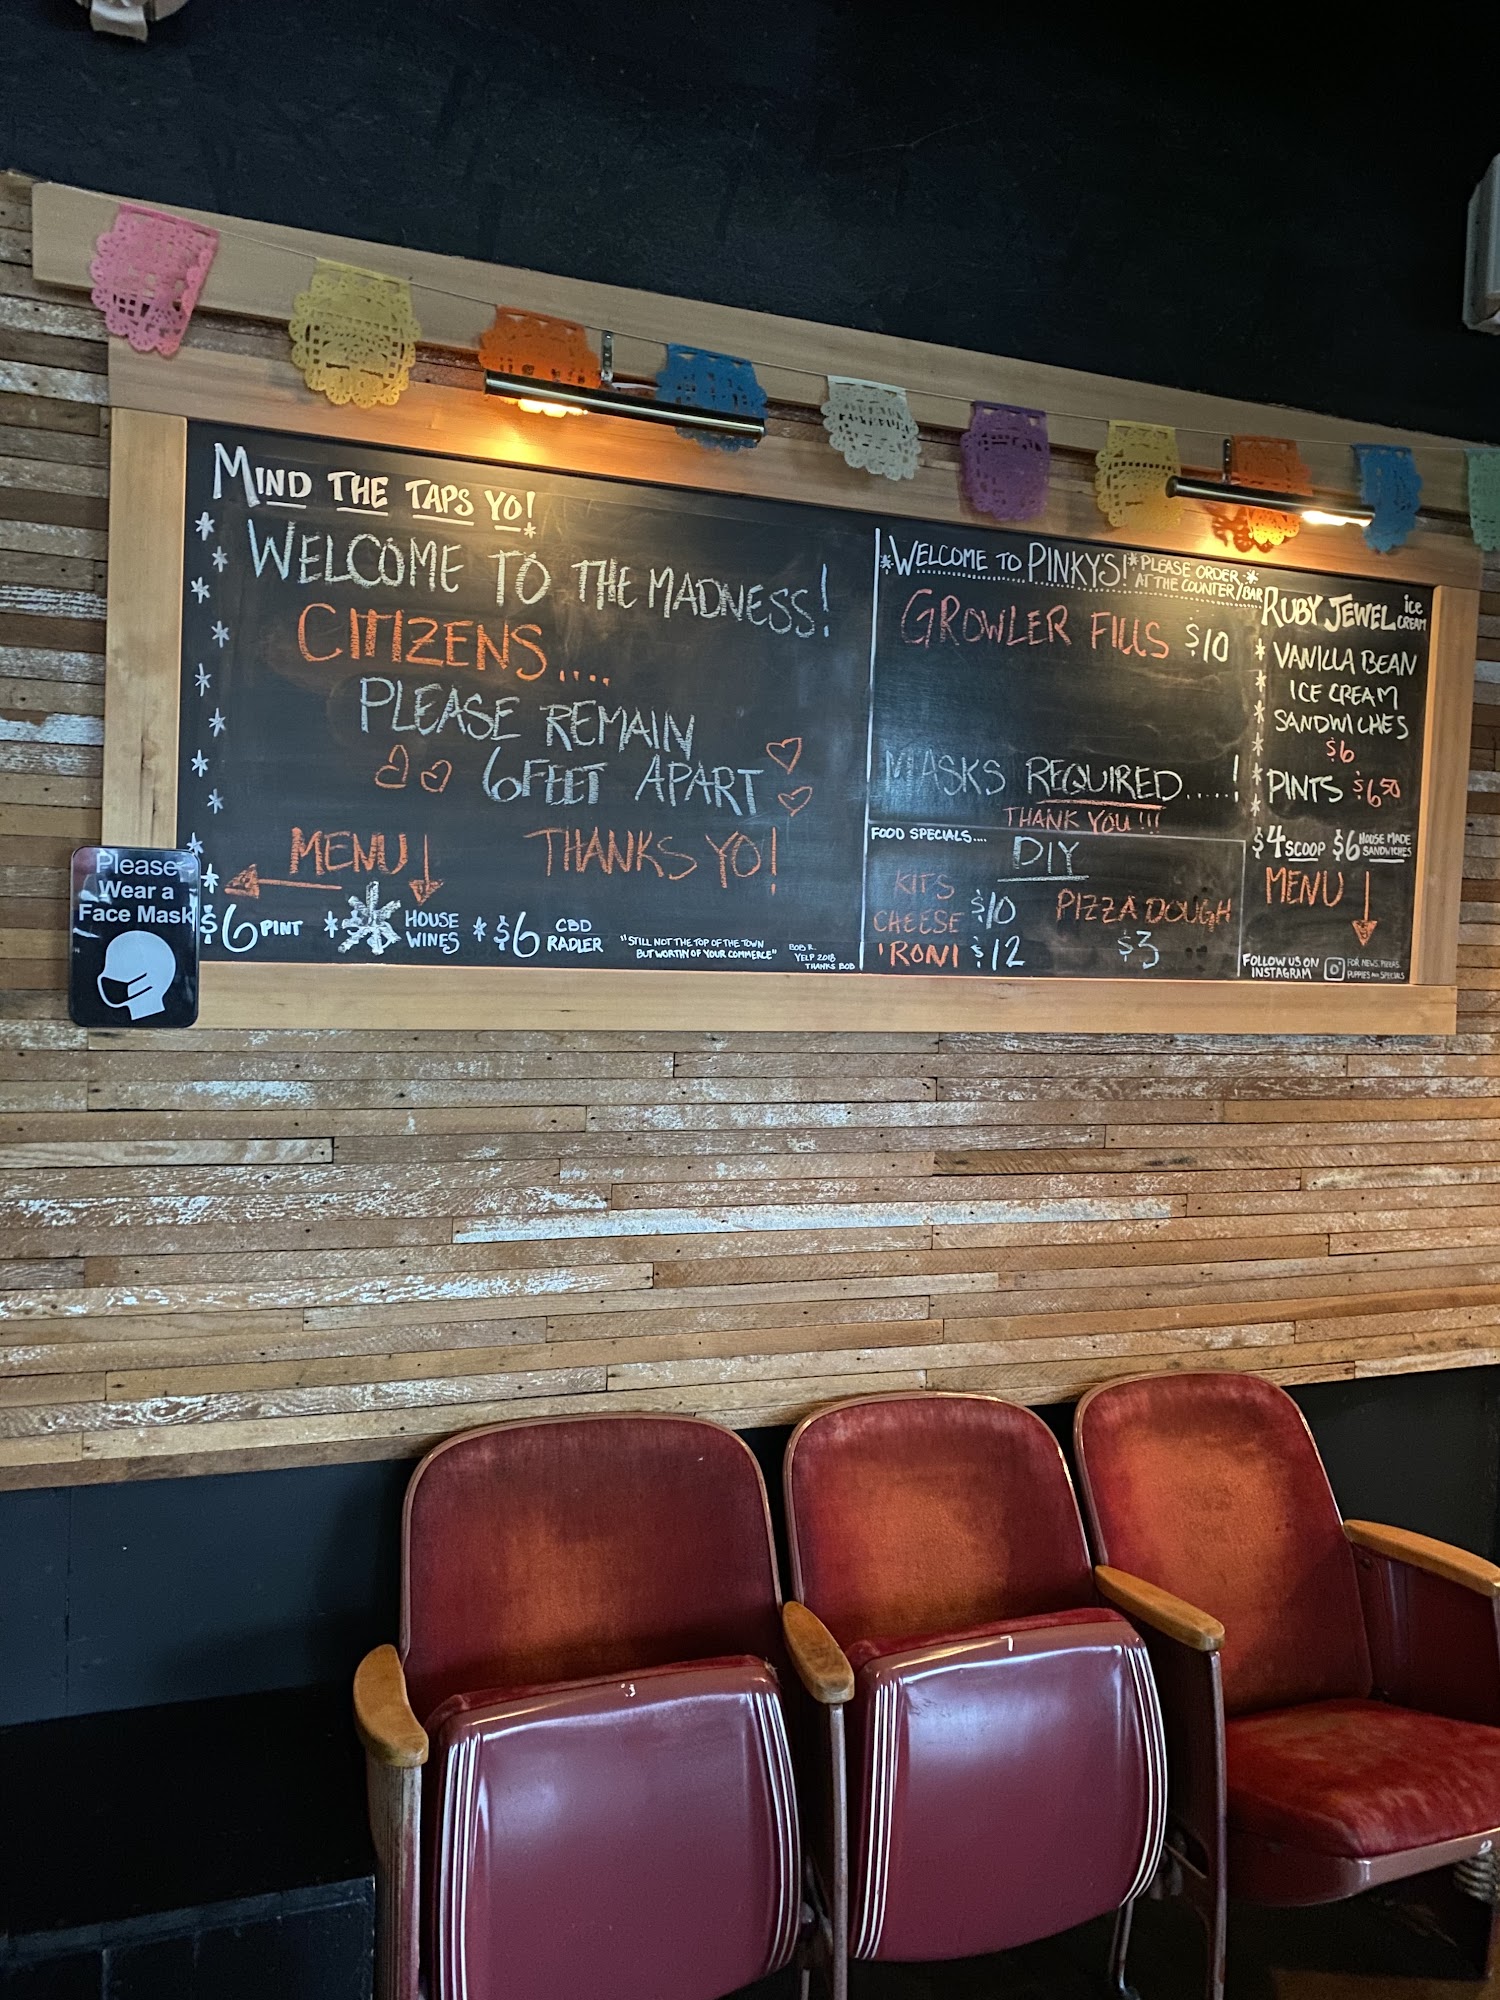 MIND THE TAPS YO!
WELCOME TO THE MADNESS!
CITIZENS....
PLEASE REMAIN
6 FEET APART
MENU
THANKS YO!
$6 PINT
HOUSE
WINES
$6 CBD
RADLER
"STILL NOT THE TOP OF THE TOWN
BUT WORTHY OF YOUR COMMERCE"
BOB R.
YELP 2018
THANKS BOB
Please
Wear a
Face Mask
WELCOME TO PINKY'S!
PLEASE ORDER
AT THE COUNTER/BAR
GROWLER FILLS $10
MASKS REQUIRED.....!
THANK YOU!!!
FOOD SPECIALS....
DIY
KITS
CHEESE $10
'RONI $12
PIZZA DOUGH
$3
RUBY JEWEL ICE
CREAM
VANILLA BEAN
ICE CREAM
SANDWICHES
$6
PINTS $6.50
$4 SCOOP
$6 HOUSE MADE
SANDWICHES
MENU
FOLLOW US ON
INSTAGRAM
FOR NEWS, PIZZAS,
PUPPIES AND SPECIALS
3
7